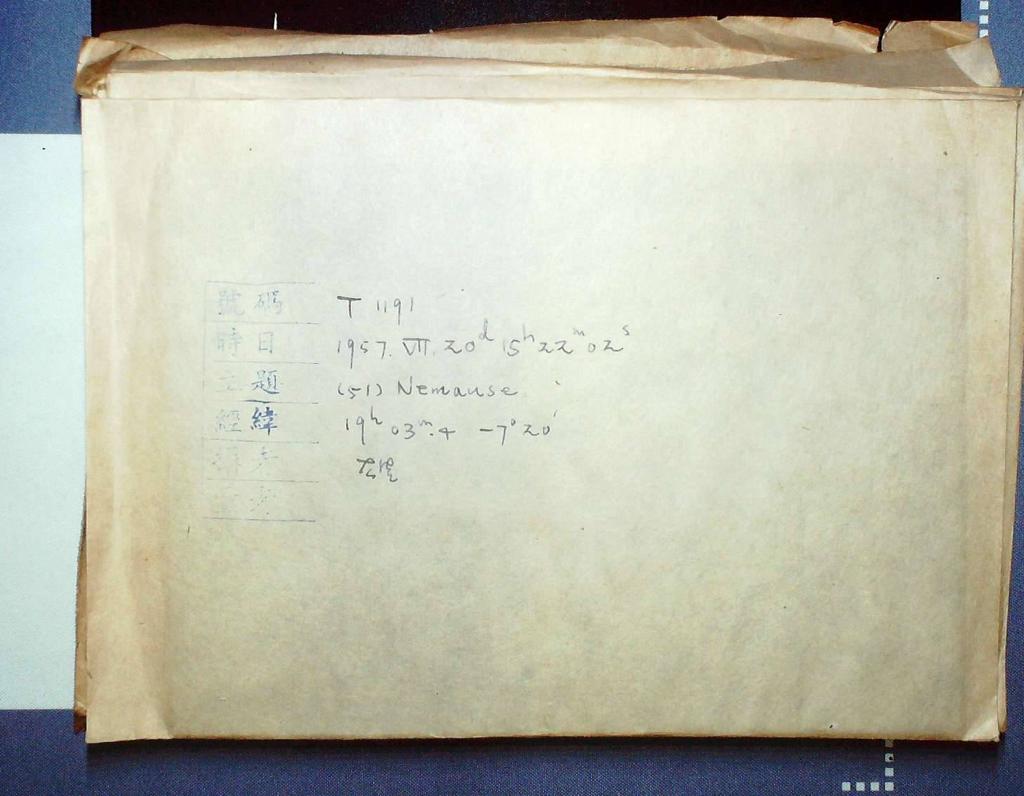 號碼 T 1191
時日 1957. VII. 20ᵈ 15ʰ 22ᵐ 02ˢ
主題 (51) Nemause
經緯 19ʰ 03ᵐ.4 -7°20'